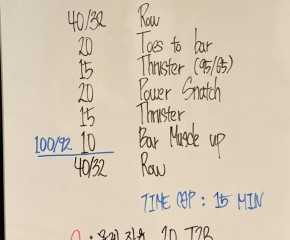 40/32 Row
20 Toes to bar
15 Thruster (95/65)
20 Power Snatch
15 Thruster
100/92 10 Bar Muscle up
40/32 Row
TIME CAP : 15 MIN
20 T2B